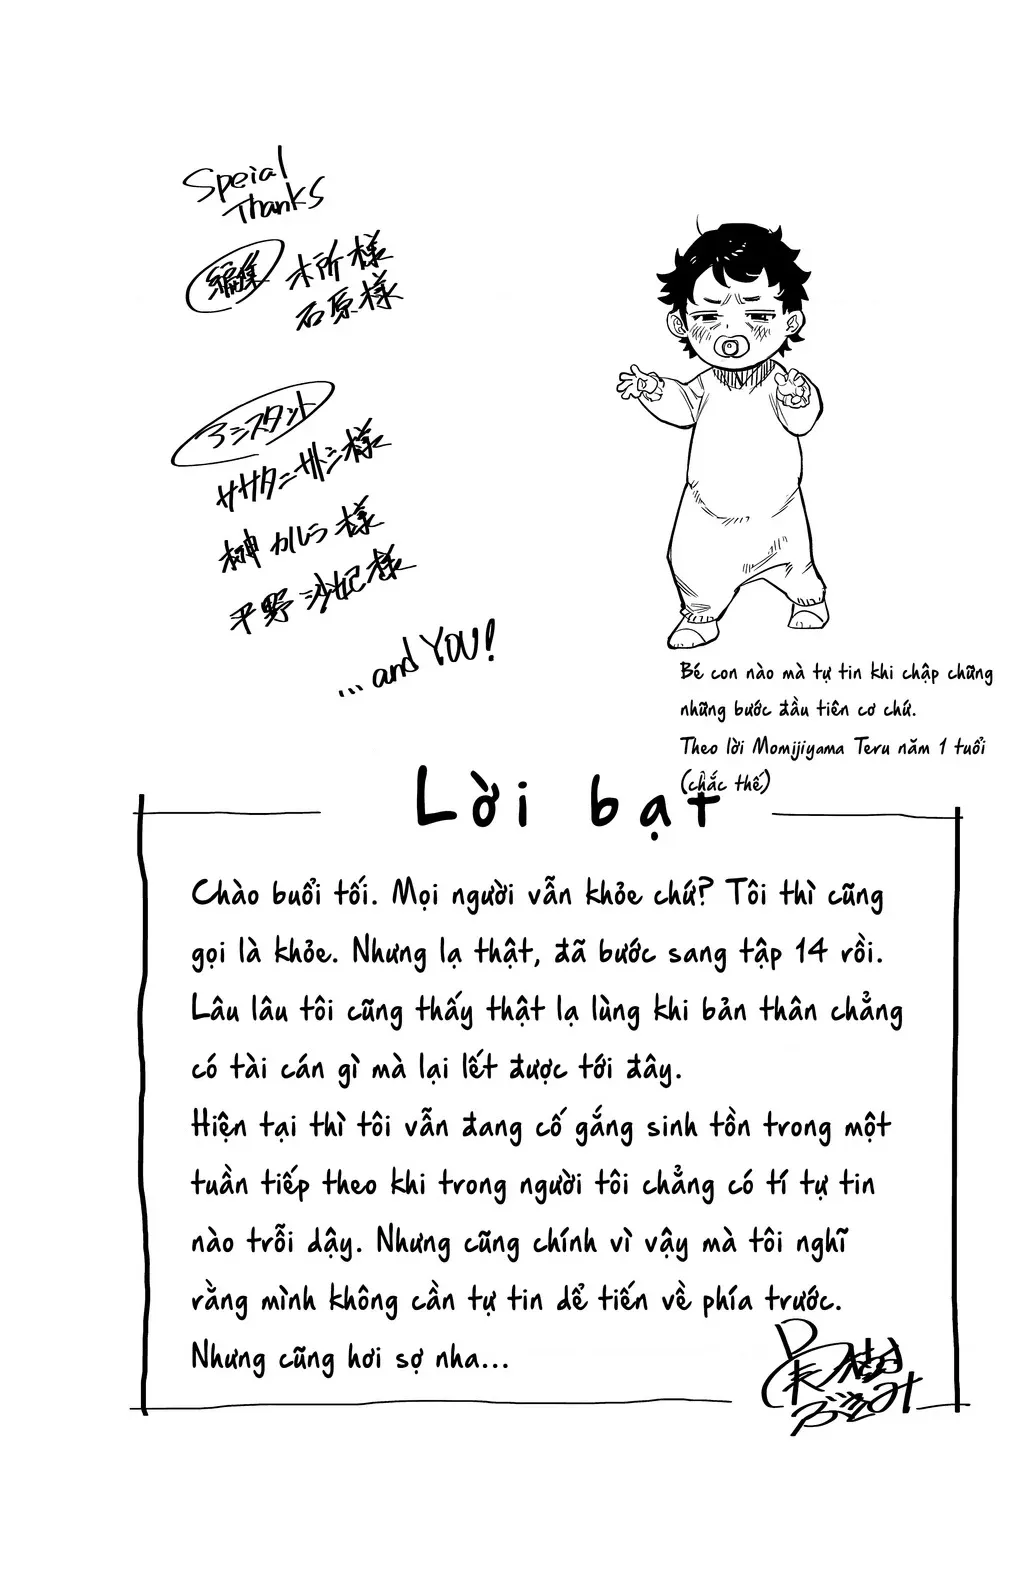 Speial
Thanks
編集
木所様
石原様
アシスタント
ササタニサトシ様
榊カルラ様
平野沙妃様
...and YOU!
Bé con nào mà tự tin khi chập chững
những bước đầu tiên cơ chứ.
Theo lời Momijiyama Teru năm 1 tuổi
(chắc thế)
Lời bạt
Chào buổi tối. Mọi người vẫn khỏe chứ? Tôi thì cũng
gọi là khỏe. Nhưng lạ thật, đã bước sang tập 14 rồi.
Lâu lâu tôi cũng thấy thật lạ lùng khi bản thân chẳng
có tài cán gì mà lại lết được tới đây.
Hiện tại thì tôi vẫn đang cố gắng sinh tồn trong một
tuần tiếp theo khi trong người tôi chẳng có tí tự tin
nào trỗi dậy. Nhưng cũng chính vì vậy mà tôi nghĩ
rằng mình không cần tự tin dể tiến về phía trước.
Nhưng cũng hơi sợ nha...